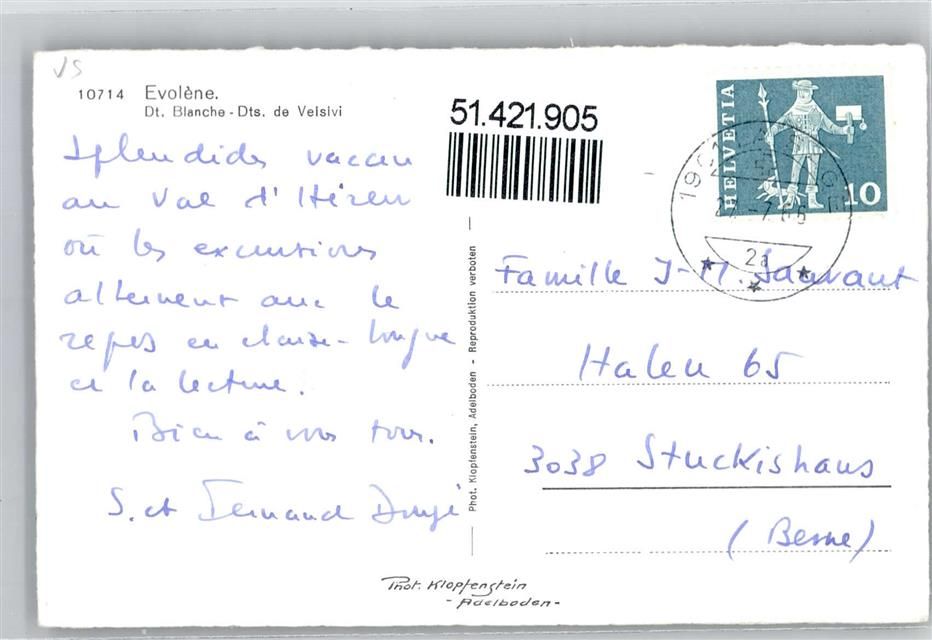 VS
10714 Evolène.
Dt. Blanche - Dts. de Veisivi
51.421.905
HELVETIA
10
Splendides vacan
au Val d'Héren
où les excursions
alternent avec le
repos en chaise-longue
et la lecture.
Bien à vous tous.
S. et Fernand
Phot. Klopfenstein, Adelboden - Reproduktion verboten
2a
Famille J-M. Sauvant
Halen 65
3038 Stuckishaus
(Berne)
Phot. Klopfenstein
- Adelboden -